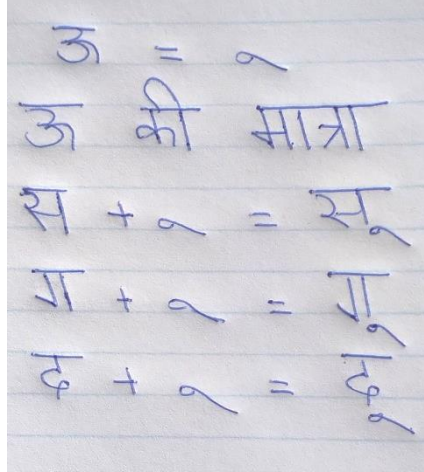 ऊ = ू
ऊ की मात्रा
स + ू = सू
ग + ू = गू
द + ू = दू